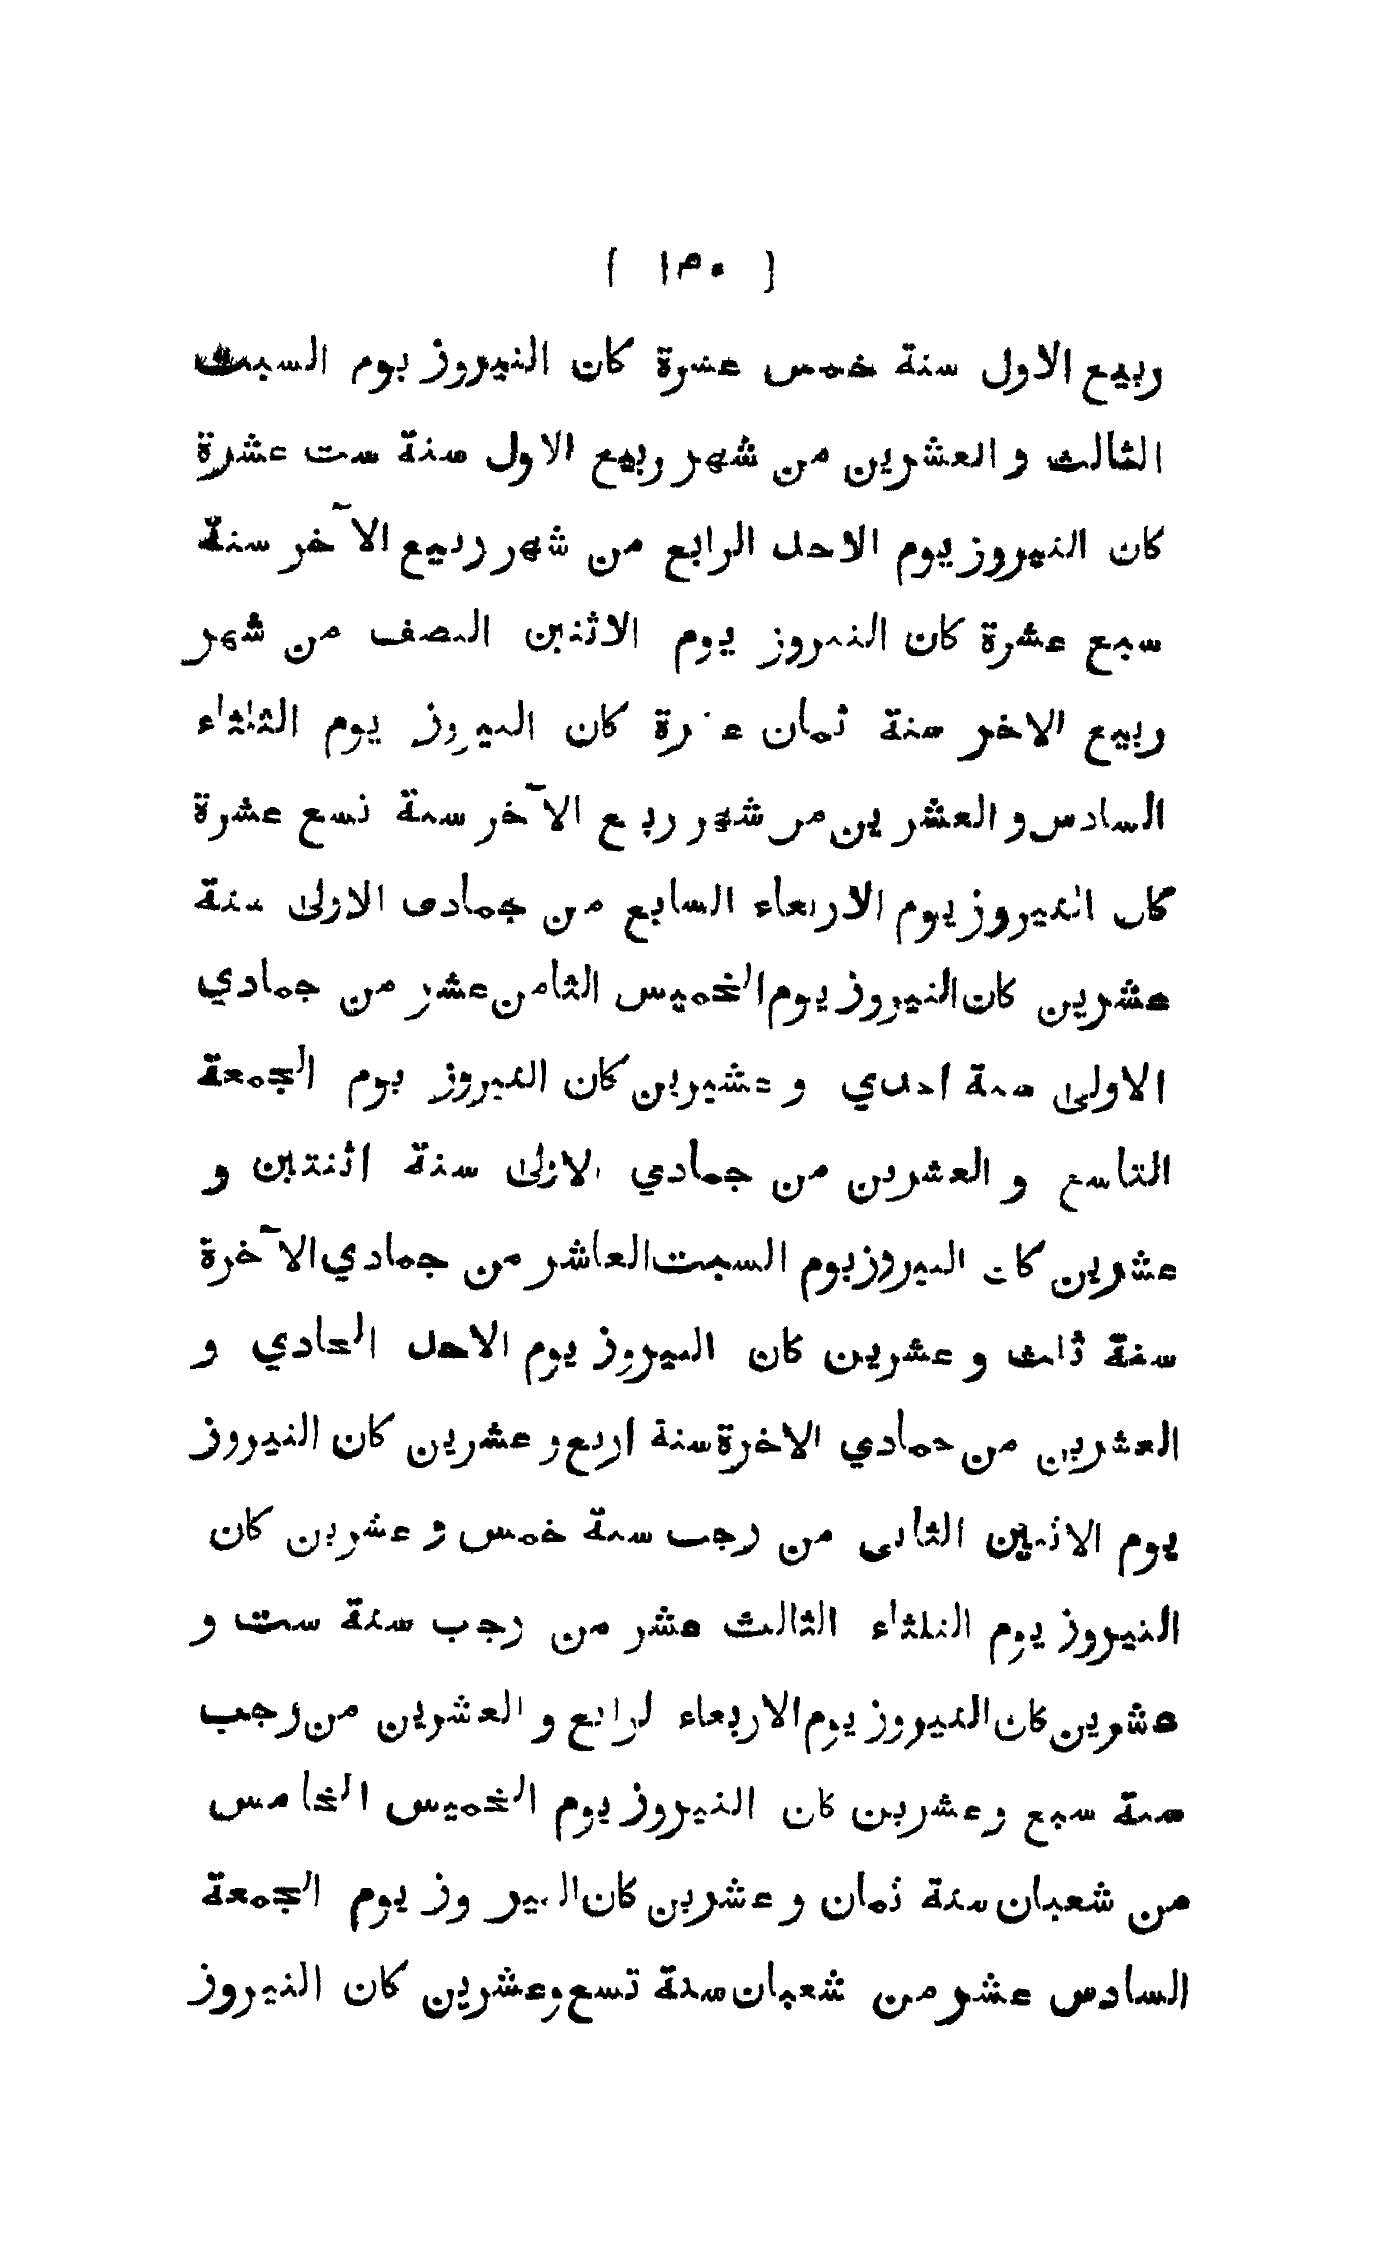 [ ١٥٠ ]
ربيع الاول سنة خمس عشرة كان النيروز يوم السبت
الثالث و العشرين من شهر ربيع الاول سنة ست عشرة
كان النيروز يوم الاحد الرابع من شهر ربيع الآخر سنة
سبع عشرة كان النيروز يوم الاثنين النصف من شهر
ربيع الاخر سنة ثمان عشرة كان النيروز يوم الثلثاء
السادس و العشرين من شهر ربيع الآخر سنة تسع عشرة
كان النيروز يوم الاربعاء السابع من جمادى الاولى سنة
عشرين كان النيروز يوم الخميس الثامن عشر من جمادي
الاولى سنة احدي و عشرين كان النيروز يوم الجمعة
التاسع و العشرين من جمادي الاولى سنة اثنتين و
عشرين كان النيروز يوم السبت العاشر من جمادي الآخرة
سنة ثلث و عشرين كان النيروز يوم الاحد الحادي و
العشرين من جمادي الاخرة سنة اربع و عشرين كان النيروز
يوم الاثنين الثاني من رجب سنة خمس و عشرين كان
النيروز يوم الثلثاء الثالث عشر من رجب سنة ست و
عشرين كان النيروز يوم الاربعاء الرابع و العشرين من رجب
سنة سبع وعشرين كان النيروز يوم الخميس الخامس
من شعبان سنة ثمان و عشرين كان النيروز يوم الجمعة
السادس عشر من شعبان سنة تسع وعشرين كان النيروز